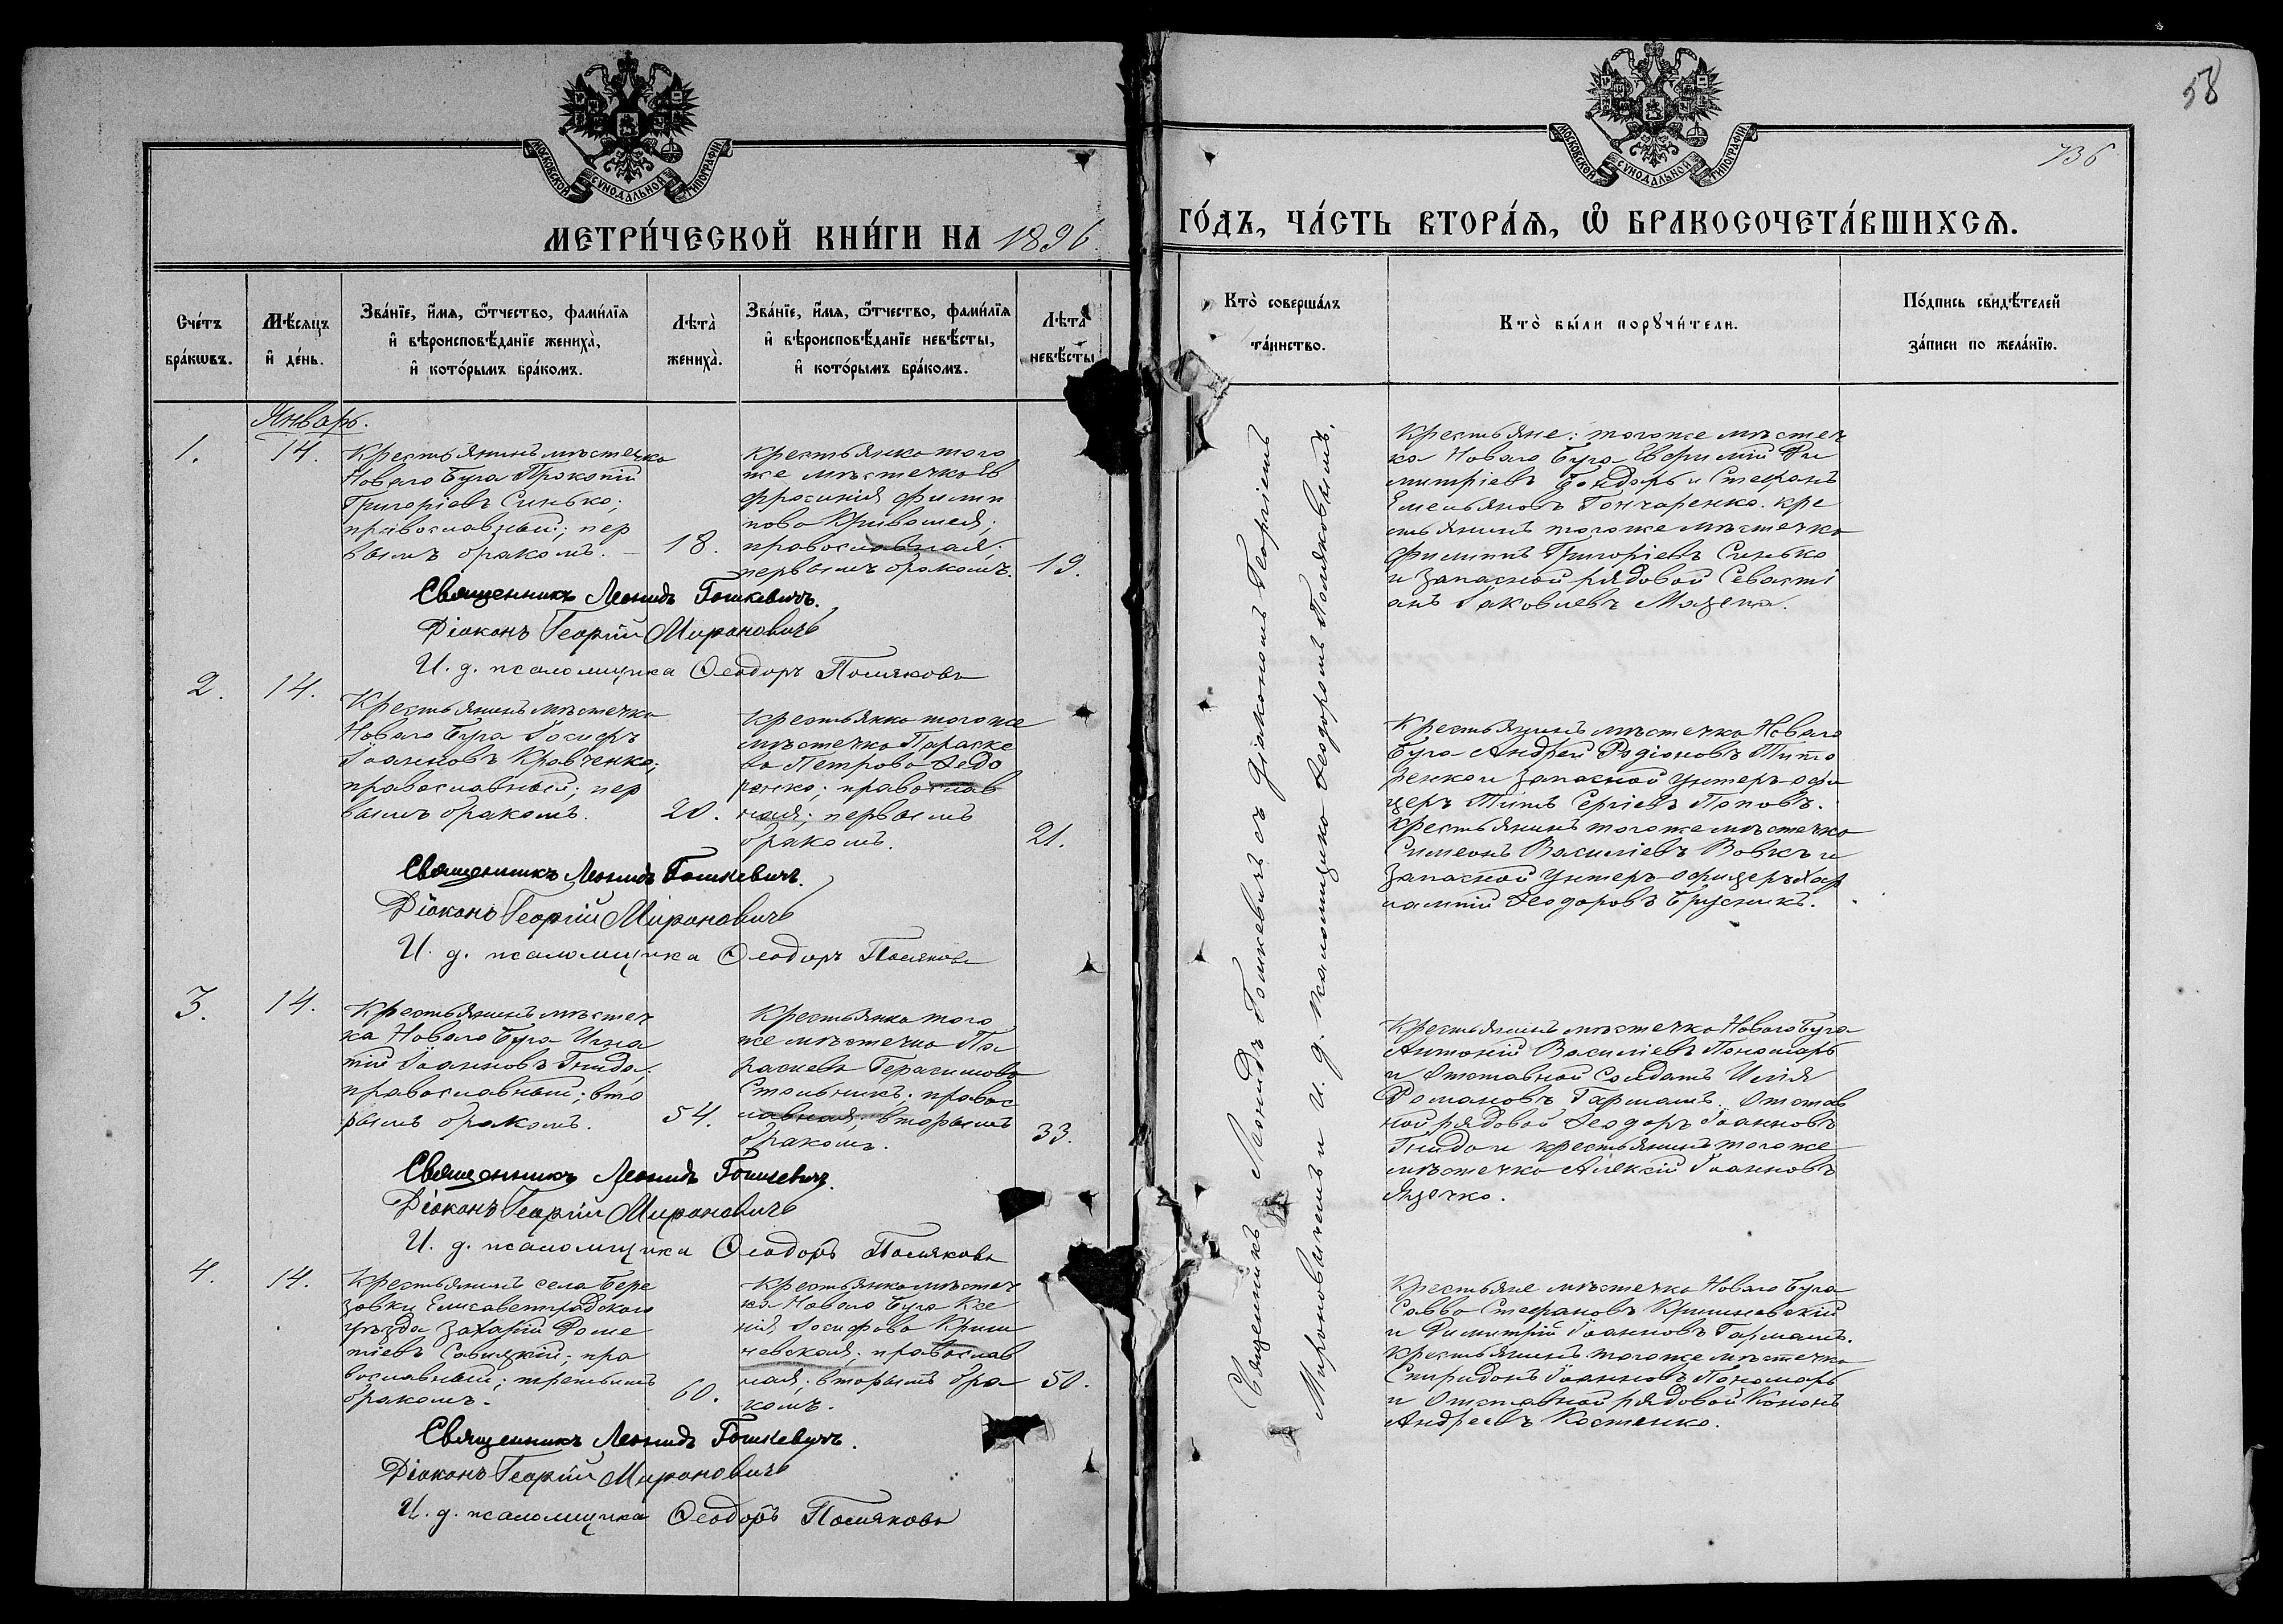 58
736
МОСКОВСКОЙ СѴНОДАЛЬНОЙ ТИПОГРАФІИ
МОСКОВСКОЙ СѴНОДАЛЬНОЙ ТИПОГРАФІИ
МЕТРИ́ЧЕСКОЙ КНИ́ГИ НА 1896
ГО́ДЪ, ЧА́СТЬ ВТОРА́Я, Ѡ БРАКОСОЧЕТА́ВШИХСѦ.
Сче́тъ бра́кѡвъ.
Мѣ́сѧцъ и҆ де́нь.
Зва́нїе, и҆́мѧ, ѻ҆́тчество, фами́лїѧ и҆ вѣроисповѣ́данїе жениха̀, и҆ кото́рымъ бра́комъ.
Лѣта̀ жениха̀.
Зва́нїе, и҆́мѧ, ѻ҆́тчество, фами́лїѧ и҆ вѣроисповѣ́данїе невѣ́сты, и҆ кото́рымъ бра́комъ.
Лѣта̀ невѣ́сты
Кто̀ соверша́лъ та́инство.
Кто̀ бы́ли порꙋчи́тели.
По́дпись свидѣ́телей за́писи по жела́нїю.
Январь.
1.
14.
Крестьянинъ мѣстечка
Новаго Буга Прокопій
Григоріевъ Синько;
православный; пер
вымъ бракомъ.
18.
Крестьянка того
же мѣстечка Ев
фросинія Филип
пова Кривошея;
православная;
первымъ бракомъ.
19.
Крестьяне: того же мѣстеч
ка Новаго Буга Евфимій Ди
митріевъ Бондарь и Стефанъ
Емельяновъ Гончаренко. кре
стьянинъ того же мѣстечка
Филиппъ Григоріевъ Синько
и запасной рядовой Севасті
анъ Іаковлевъ Мазепа.
Священникъ Леонидъ Гошкевичъ.
Діаконъ Георгій Мироновичъ
И. д. псаломщика Ѳеодоръ Поляковъ
2.
14.
Крестьянинъ мѣстечка
Новаго Буга Іосифъ
Іоанновъ Кравченко;
православный; пер
вымъ бракомъ.
20.
Крестьянка того же
мѣстечка Параске
ва Петрова Ѳедо
ренко; православ
ная; первымъ
бракомъ.
21.
Крестьянинъ мѣстечка Новаго
Буга Андрей Родіоновъ Тито
ренко и запасной унтеръ-офи
церъ Титъ Сергіевъ Поповъ.
крестьянинъ того же мѣстечка
Симеонъ Василіевъ Вовкъ и
запасной унтеръ-офицеръ Хар
лампій Ѳеодоровъ Брусникъ.
Священникъ Леонидъ Гошкевичъ.
Діаконъ Георгій Мироновичъ
И. д. псаломщика Ѳеодоръ Поляковъ
3.
14.
Крестьянинъ мѣстеч
ка Новаго Буга Игна
тій Іоанновъ Гнида;
православный; вто
рымъ бракомъ.
54.
Крестьянка того
же мѣстечка Па
раскева Герасимова
Стольникъ; правос
лавная; вторымъ
бракомъ.
33.
Крестьянинъ мѣстечка Новаго Буга
Антоній Василіевъ Пономарь
и отставной солдатъ Илія
Романовъ Гармашъ. Отстав
ной рядовой Ѳеодоръ Іоанновъ
Гнида и крестьянинъ того же
мѣстечка Алексій Іоанновъ
Яцечко.
Священникъ Леонидъ Гошкевичъ.
Діаконъ Георгій Мироновичъ
И. д. псаломщика Ѳеодоръ Поляковъ
4.
14.
Крестьянинъ села Бере
зовки Елисаветградскаго
уѣзда Захарій Доме
тіевъ Савицкій; пра
вославный; третьимъ
бракомъ.
60.
Крестьянка мѣстеч
ка Новаго Буга Ксе
нія Іосифова Криш
невская; православ
ная; вторымъ бра
комъ.
50.
Крестьяне мѣстечка Новаго Буга
Савва Стефановъ Кришневскій
и Димитрій Іоанновъ Гармашъ.
крестьянинъ того же мѣстечка
Спиридонъ Іоанновъ Пономарь
и отставной рядовой Кононъ
Андреевъ Костенко.
Священникъ Леонидъ Гошкевичъ.
Діаконъ Георгій Мироновичъ
И. д. псаломщика Ѳеодоръ Поляковъ
Священникъ Леонидъ Гошкевичъ съ діакономъ Георгіемъ
Мироновичемъ и и. д. псаломщика Ѳеодоромъ Поляковымъ.